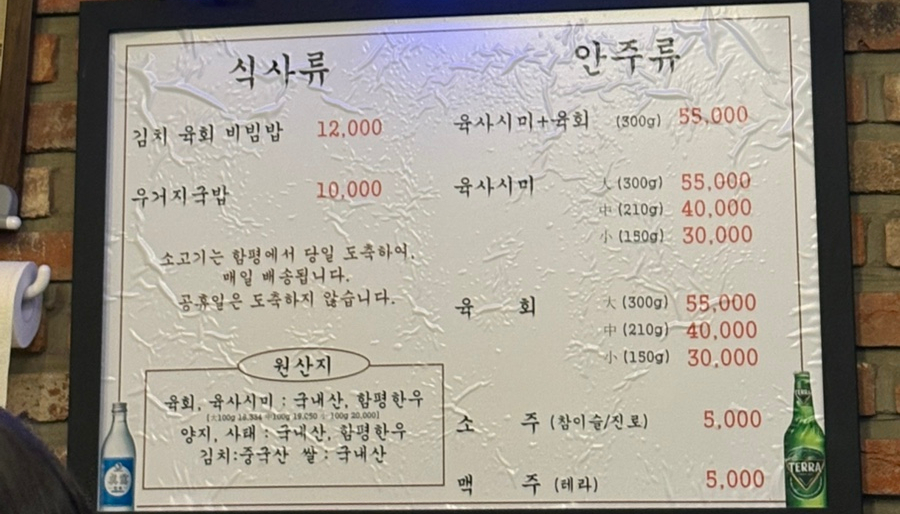 식사류
김치 육회 비빔밥 12,000
우거지국밥 10,000
소고기는 함평에서 당일 도축하여,
매일 배송됩니다.
공휴일은 도축하지 않습니다.
원산지
육회, 육사시미 : 국내산, 함평한우
양지, 사태 : 국내산, 함평한우
김치:중국산 쌀 : 국내산
안주류
육사시미+육회 (300g) 55,000
육사시미 大 (300g) 55,000
中 (210g) 40,000
小 (150g) 30,000
육 회 大 (300g) 55,000
中 (210g) 40,000
小 (150g) 30,000
소 주 (참이슬/진로) 5,000
맥 주 (테라) 5,000
TERRA